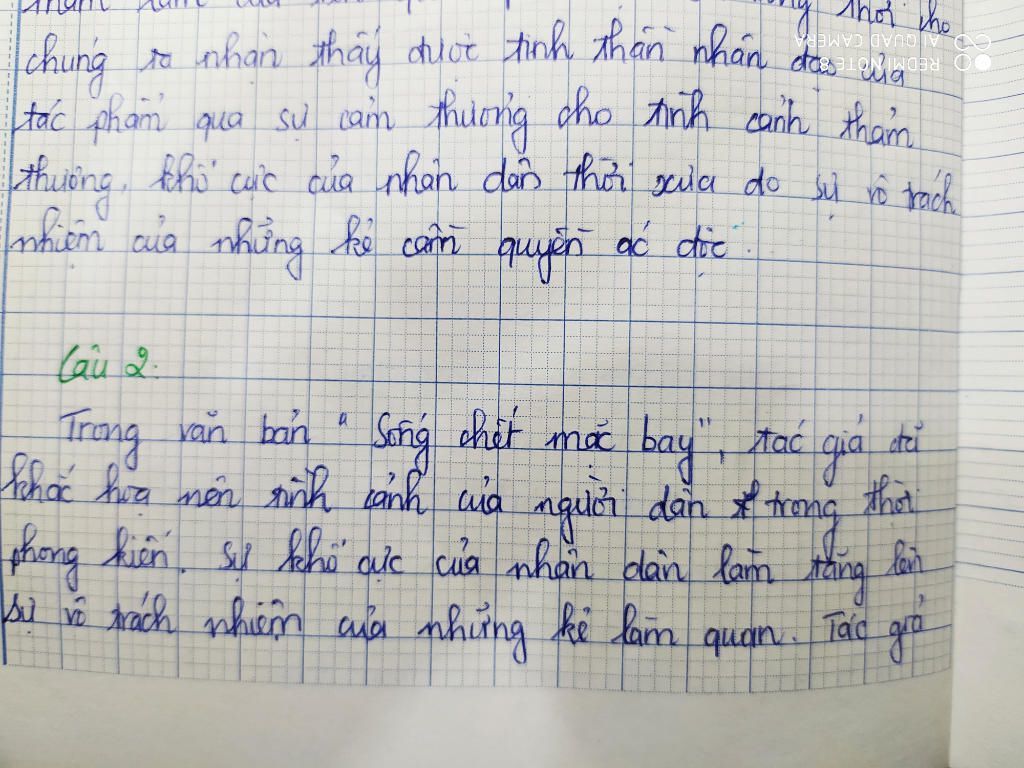 thời cho
chúng ta nhận thấy được tinh thần nhân đạo của
tác phẩm qua sự cảm thương cho tình cảnh thảm
thương, khổ cực của nhân dân thời xưa do sự vô trách
nhiệm của những kẻ cầm quyền ác độc.
Câu 2:
Trong văn bản "Sống chết mặc bay", tác giả đã
khắc hoạ nên tình cảnh của người dân trong thời
phong kiến. Sự khổ cực của nhân dân làm tăng lên
sự vô trách nhiệm của những kẻ làm quan. Tác giả
REDMI NOTE 8
AI QUAD CAMERA